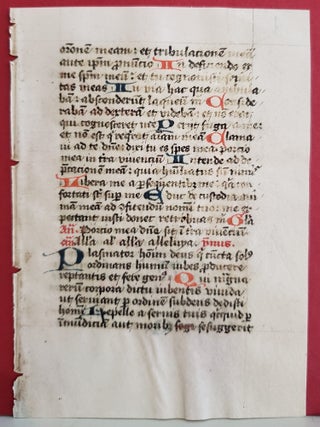 oronē meam: et tribulationē meā
ante ip̄m pronūcio In deficiendo ex
me sp̄m meū: et tu cognouisti semi
tas meas In via hac qua ambula
bā: absconderūt laqueū m̄ Consīde
rabā ad dexterā et videbā: et nō erat
qui cognosceret me Perijt fuga a me:
et nō est q̇ requirat aīam meā Clama
ui ad te dn̄e dixi tu es spes mea: porcio
mea in trā viuenciū Intende ad de
p̄cationē meā: quia humiliatus sū nimis
Libera me a persequentib; me: q̇a con
fortati st̄ sup̄ me Educ de custodia aīa
meam ad ꝯfitendū nomī tuo: me ex
pectant iusti donec retribuas m̄ Gl̄a
An̄. Porcio mea dn̄e. sit ī trā viuenciū
all'a al all'a alleluya. ymnus.
Plasmator hoīm deus q̇ cuncta solꝰ
ordinans humū iubes producere
reptantis et fere genꝰ Qui magna
rerū corpora dictu iubentis viuida
ut seruiant p ordinem subdens dedisti
homī Repelle a seruis tuis quicquid p
īmundicia aut morib; sese suggerit